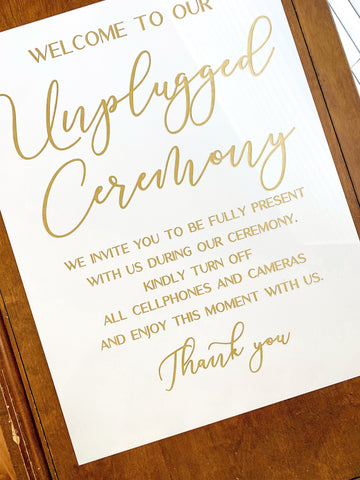 WELCOME TO OUR
Unplugged
Ceremony
WE INVITE YOU TO BE FULLY PRESENT
WITH US DURING OUR CEREMONY.
KINDLY TURN OFF
ALL CELLPHONES AND CAMERAS
AND ENJOY THIS MOMENT WITH US.
Thank you